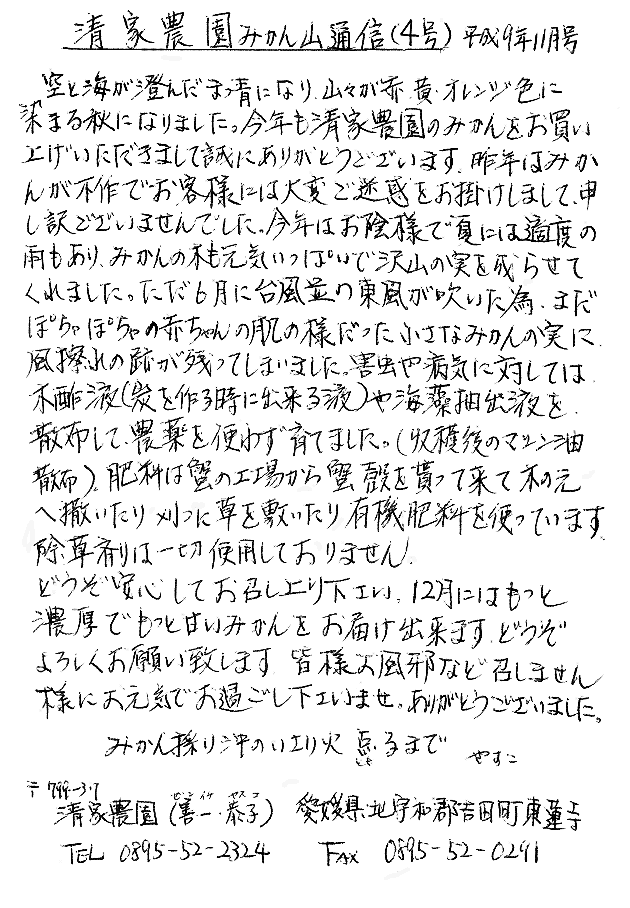 清家農園みかん山通信(4号) 平成9年11月号
空と海が澄んだまっ青になり、山々が赤・黄・オレンジ色に
染まる秋になりました。今年も清家農園のみかんをお買い
上げいただきまして誠にありがとうございます。昨年はみか
んが不作でお客様には大変ご迷惑をお掛けしまして、申
し訳ございませんでした。今年はお陰様で夏には適度の
雨もあり、みかんの木も元気いっぱいで沢山の実を成らせて
くれました。ただ6月に台風並の東風が吹いた為、まだ
ぽちゃぽちゃの赤ちゃんの肌の様だった小さなみかんの実に
風擦れの跡が残ってしまいました。害虫や病気に対しては
木酢液(炭を作る時に出来る液)や海藻抽出液を
散布して、農薬を使わず育てました。(収穫後のマシン油
散布)。肥料は蟹の工場から蟹殻を貰って来て木の元
へ撒いたり刈った草を敷いたり有機肥料を使っています。
除草剤は一切使用しておりません。
どうぞ安心してお召し上り下さい。12月にはもっと
濃厚でもっとはいみかんをお届け出来ます。どうぞ
よろしくお願い致します。皆様お風邪など召しません
様にお元気でお過ごし下さいませ。ありがとうございました。
みかん採り沖のいさり火点るまで やすこ
〒799-37
清家農園(善一・泰子) 愛媛県北宇和郡吉田町東蓮寺
TEL 0895-52-2324 FAX 0895-52-0291